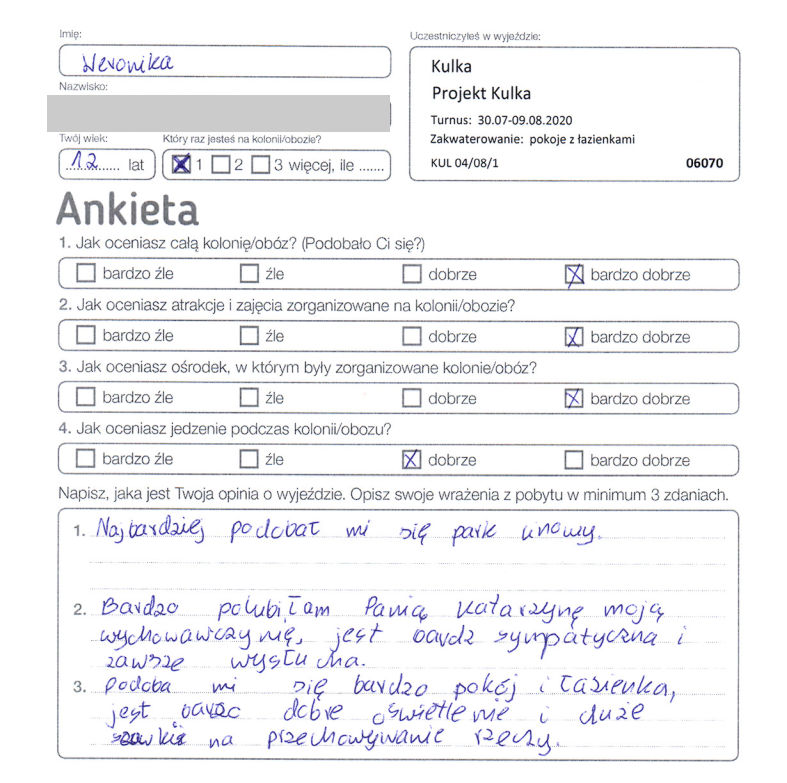 Imię:
Weronika
Nazwisko:
Twój wiek:
12 lat
Który raz jesteś na kolonii/obozie?
1 2 3 więcej, ile .......
Uczestniczyłeś w wyjeździe:
Kulka
Projekt Kulka
Turnus: 30.07-09.08.2020
Zakwaterowanie: pokoje z łazienkami
KUL 04/08/1 06070
Ankieta
1. Jak oceniasz całą kolonię/obóz? (Podobało Ci się?)
bardzo źle źle dobrze bardzo dobrze
2. Jak oceniasz atrakcje i zajęcia zorganizowane na kolonii/obozie?
bardzo źle źle dobrze bardzo dobrze
3. Jak oceniasz ośrodek, w którym były zorganizowane kolonie/obóz?
bardzo źle źle dobrze bardzo dobrze
4. Jak oceniasz jedzenie podczas kolonii/obozu?
bardzo źle źle dobrze bardzo dobrze
Napisz, jaka jest Twoja opinia o wyjeździe. Opisz swoje wrażenia z pobytu w minimum 3 zdaniach.
1. Najbardziej podobał mi się park linowy.
2. Bardzo polubiłam Panią Katarzynę moją
wychowawczynię, jest bardz sympatyczna i
zawsze wysłucha.
3. Podoba mi się bardzo pokój i łazienka,
jest bardzo dobre oświetlenie i duże
na przechowywanie rzeczy.